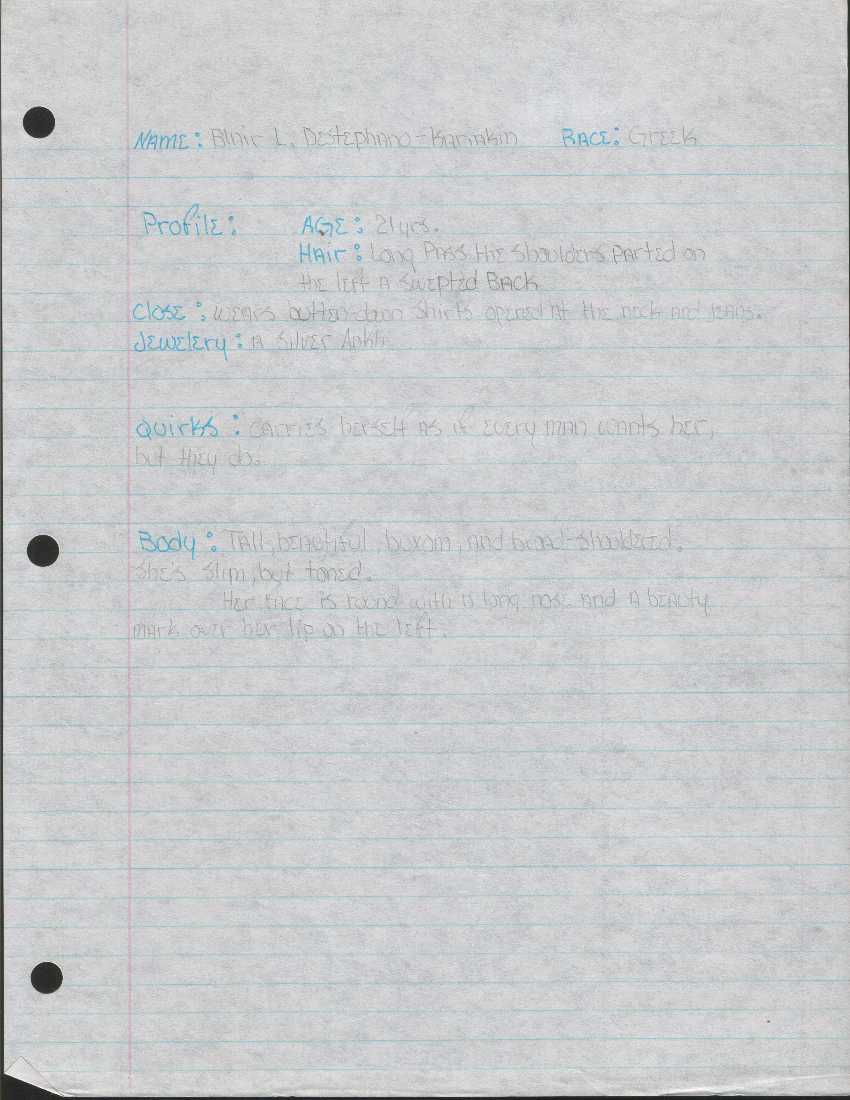 Name: Blair L. Destephano-Kariakin Race: Greek
Profile: Age: 21yrs.
Hair: Long Pass the shoulders parted on
the left A swepted Back
Close: wears button-down shirts opened At the neck and jeans.
Jewelery: A silver Ankh.
Quirks: carries herself as if every man wants her,
but they do.
Body: Tall, beautiful, buxom, and broad-shouldered.
She's slim, but toned.
Her face is round with a long nose and a beauty
mark over her lip on the left.